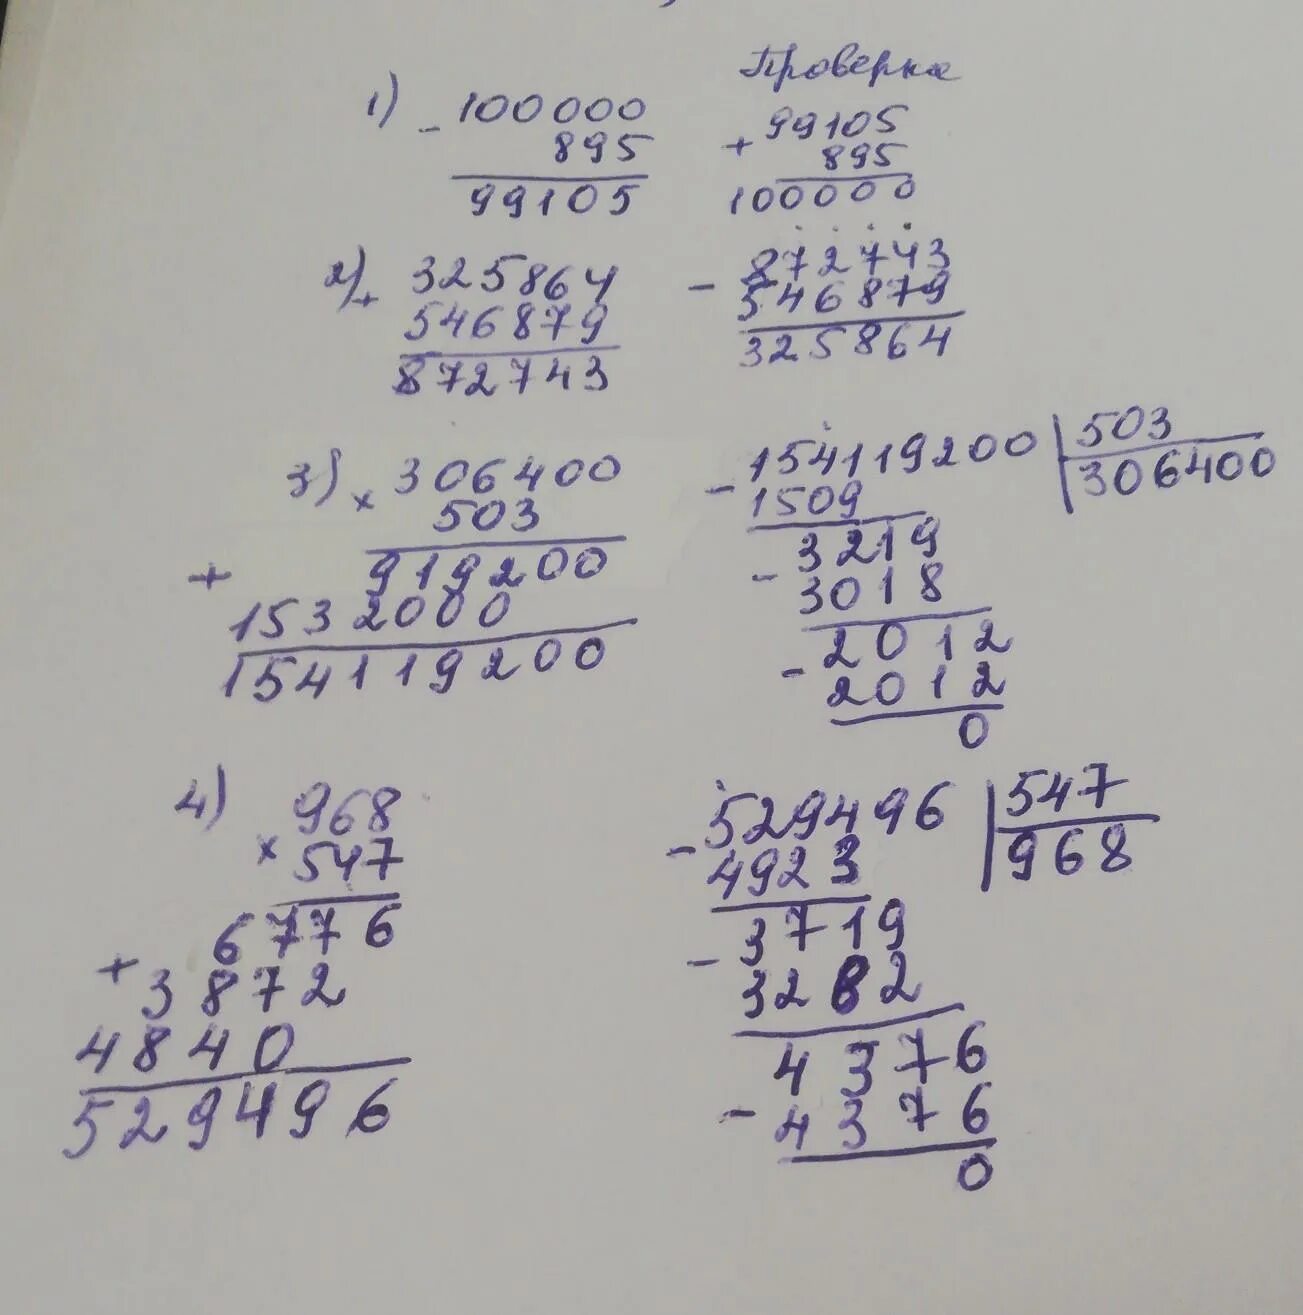 Проверка
1) - 100000
895
99105
+ 99105
895
100000
2) + 325864
546879
872743
- 872743
546879
325864
3) × 306400
503
+ 919200
1532000
154119200
- 154119200 | 503
1509 306400
- 3219
3018
- 2012
2012
0
4) × 968
547
+ 6776
3872
4840
529496
- 529496 | 547
4923 968
- 3719
3282
- 4376
4376
0